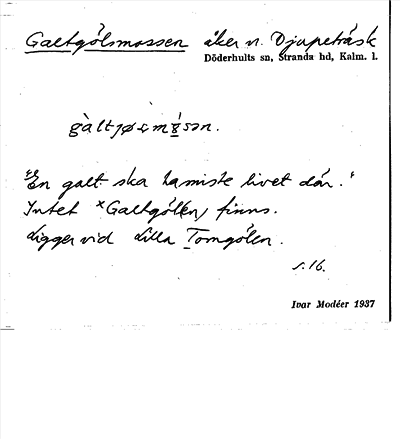 Galtgölsmossen åker n. Djupeträsk
Döderhults sn, Stranda hd, Kalm. l.
"En galt ska ha miste livet där."
Intet ×Galtgölen finns.
Ligger vid Lilla Tomgölen.
s. 16.
Ivar Modéer 1937